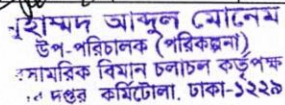 মুহাম্মদ আব্দুল মোনেম
উপ-পরিচালক (পরিকল্পনা)
বেসামরিক বিমান চলাচল কর্তৃপক্ষ
দপ্তর কুর্মিটোলা, ঢাকা-১২২৯